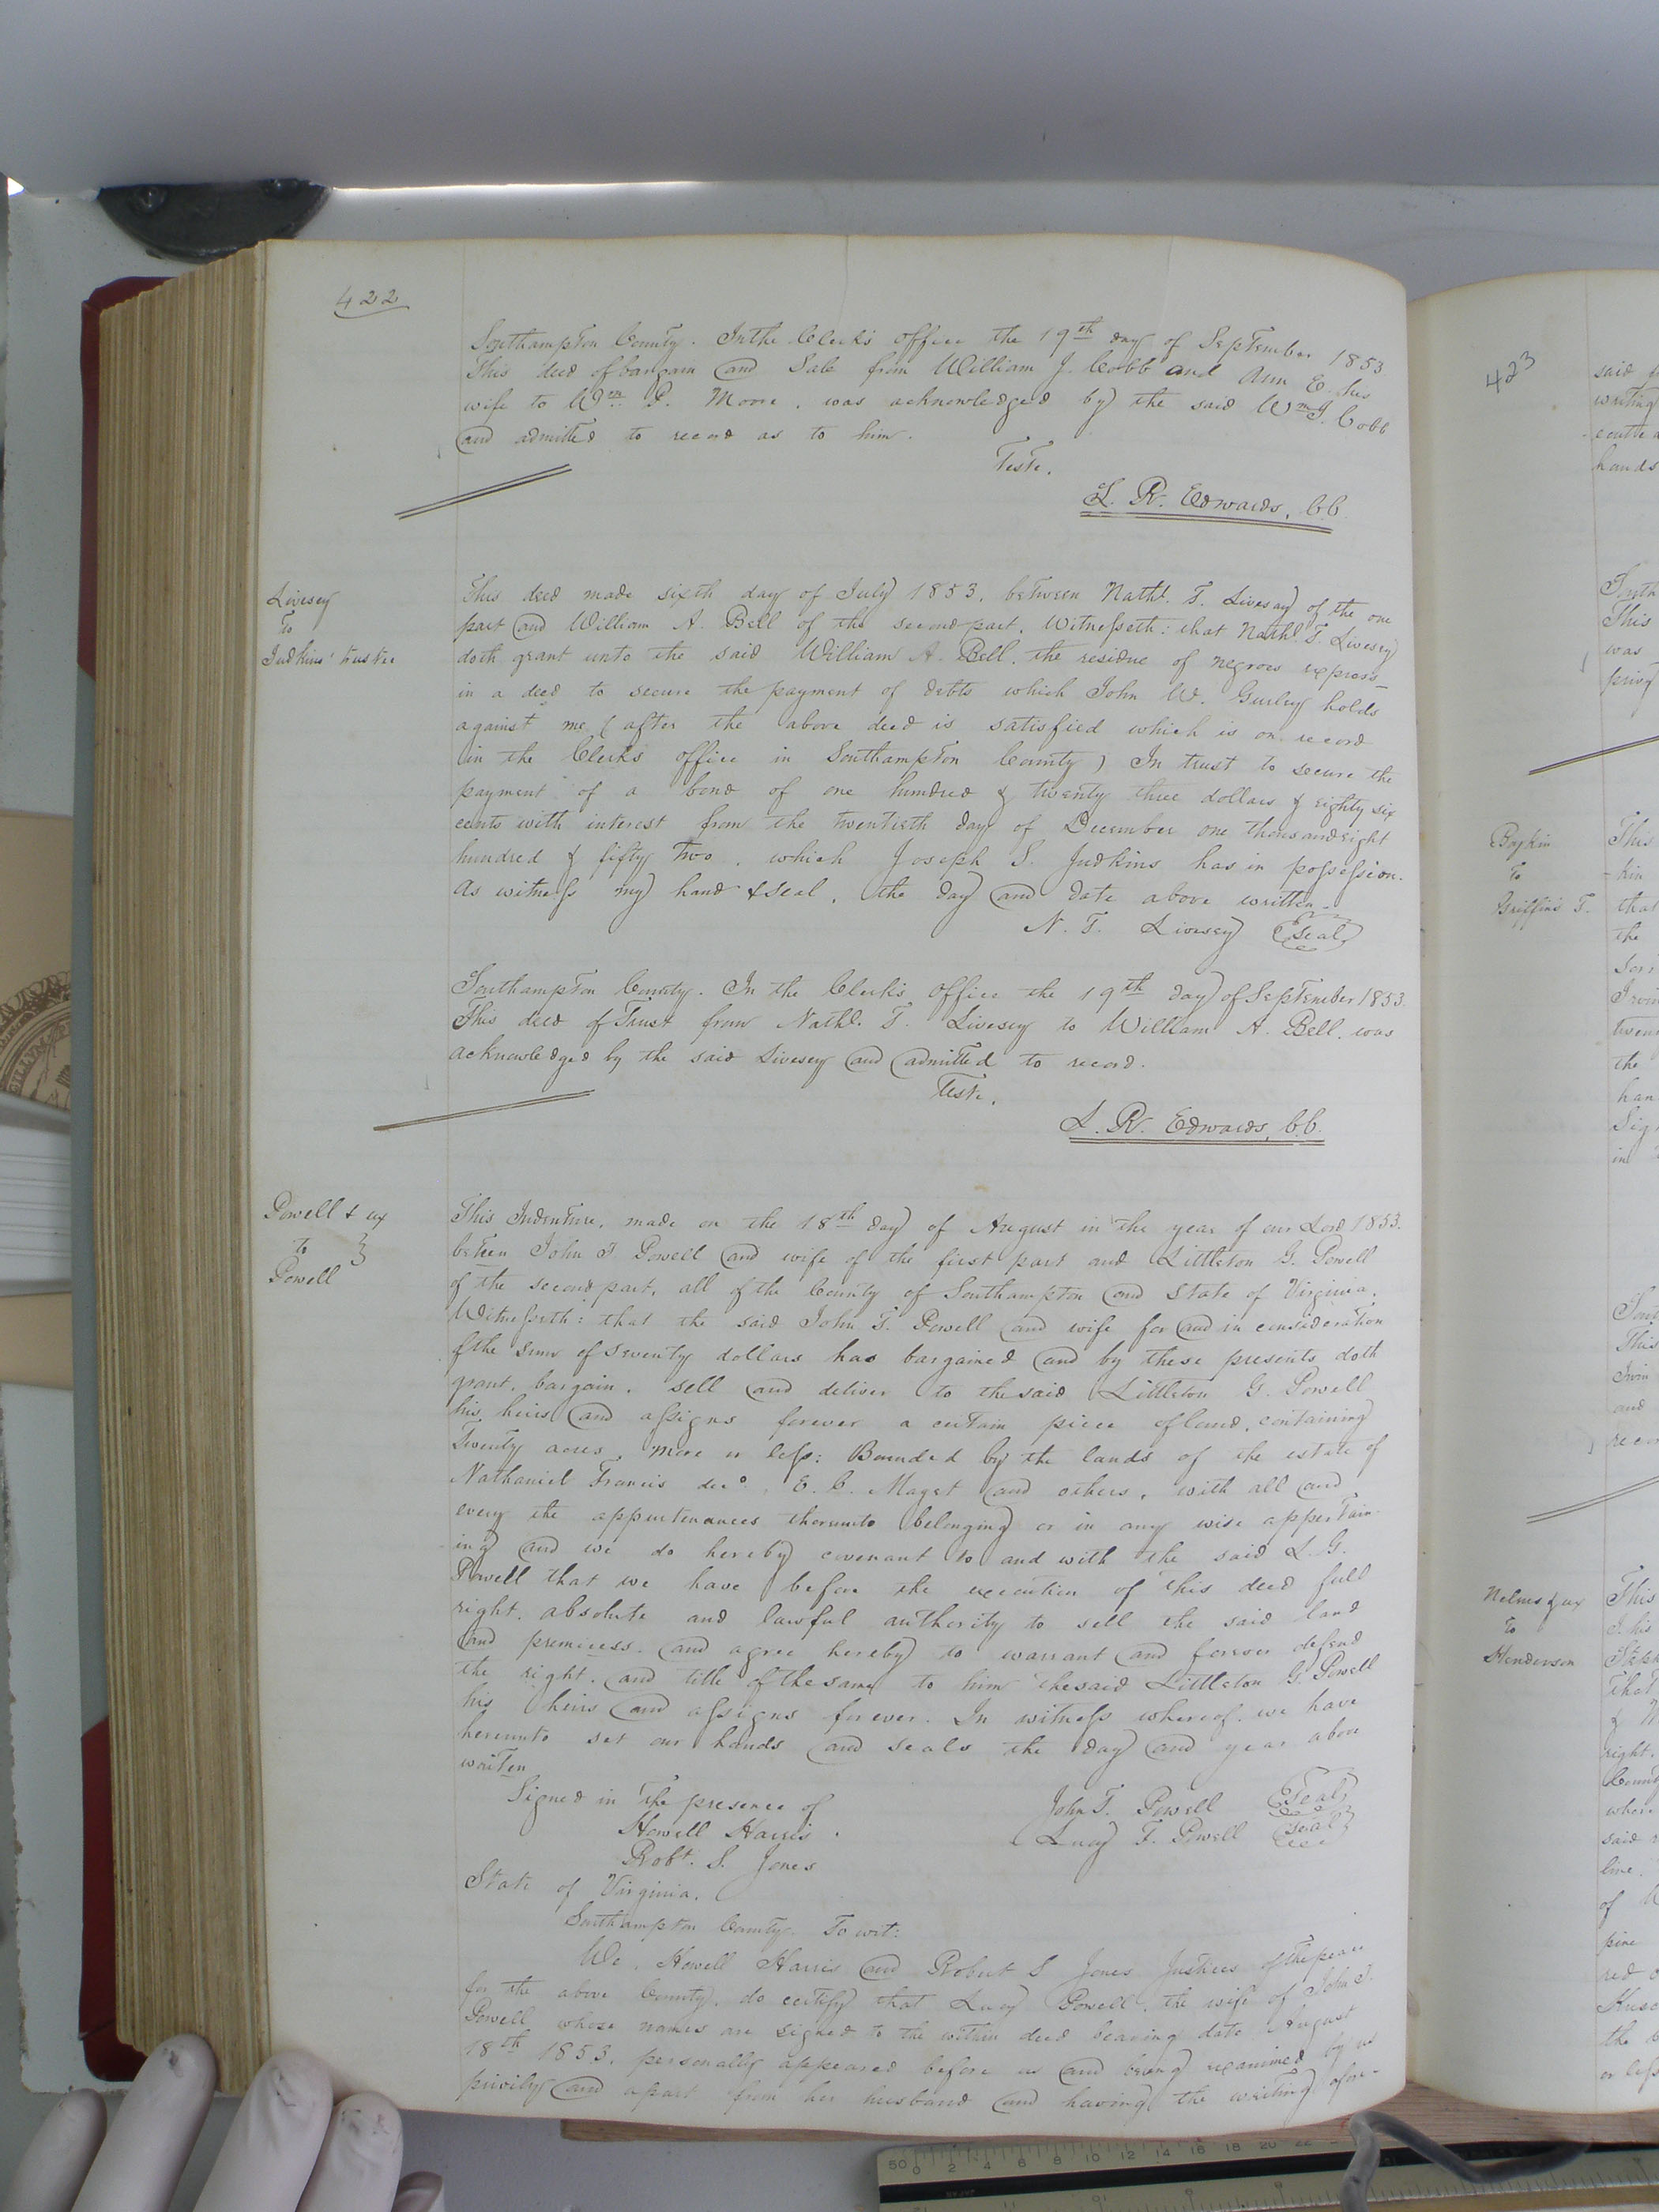 422
Southampton County. In the Clerk's office the 19th day of September 1853
This deed of bargain and Sale from William J. Cobb and Ann E. his
wife to Wm P. Moore, was acknowledged by the said Wm J. Cobb
and admitted to record as to him.
Teste,
L. R. Edwards, C.C.
Livesey
To
Judkins' trustee
This deed made sixth day of July 1853, between Nathl. T. Livesay of the one
part and William A. Bell of the second part, Witnesseth: that Nathl. T. Livesey
doth grant unto the said William A. Bell, the residue of negroes express-
in a deed to secure the payment of debts which John W. Gurley holds
against me (after the above deed is satisfied which is on record
in the Clerk's office in Southampton County) In trust to secure the
payment of a bond of one hundred & twenty three dollars & eighty six
cents with interest from the twentieth day of December one thousand eight
hundred & fifty Two, which Joseph S. Judkins has in possession.
As witness my hand & seal, the day and date above written.
N. T. Livesey Seal
Southampton County. In the Clerk's office the 19th day of September 1853.
This deed of Trust from Nathl. T. Livesey to William A. Bell, was
acknowledged by the said Livesey and admitted to record.
Teste,
L. R. Edwards, C.C.
Powell & ux
to
Powell
This Indenture, made on the 18th day of August in the year of our Lord 1853.
beteen John T Powell and wife of the first part and Littleton G. Powell
of the second part, all of the County of Southampton and State of Virginia.
Witnesseth: that the said John T. Powell and wife for and in consideration
of the sum of seventy dollars has bargained and by these presents doth
grant, bargain, sell and deliver to the said Littleton G. Powell
his heirs and assigns forever a certain piece of land, containing
Twenty acres, more or less: Bounded by the lands of the estate of
Nathaniel Francis decd, E. C. Maget and others, with all and
every the appurtenances thereunto belonging or in any wise appertain-
ing and we do hereby covenant to and with the said L. G.
Powell that we have before the execution of this deed full
right, absolute and lawful authority to sell the said land
and premicess and agree hereby to warrant and forever defend
the right, and title of the same to him the said Littleton G. Powell
his heirs and assigns forever. In witness whereof we have
hereunto set our hands and seals the day and year above
written
Signed in the presence of
Howell Harris
Robt. S. Jones
John T. Powell Seal
Lucy F. Powell Seal
State of Virginia,
Southampton County To wit:
We, Howell Harris and Robert S Jones Justices of the peace
for the above County, do certify that Lucy Powell, the wife of John T.
Powell whose names are signed to the within deed bearing date August
18th 1853, personally appeared before us and being examined by us
privily and apart from her husband and having the writing afore-
423
said
writing
hands
This
was
privy
Boykin
to
Griffin's T.
This
- kin
that
the
the
in
This
and
Nelms & ux
to
Henderson
This
that
right.
where
said
line.
of
pine
the
or less